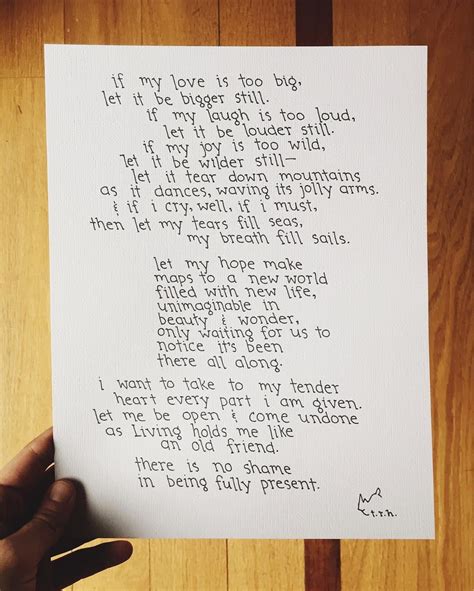 if my love is too big,
let it be bigger still.
if my laugh is too loud,
let it be louder still.
if my joy is too wild,
let it be wilder still—
let it tear down mountains
as it dances, waving its jolly arms.
& if i cry, well, if i must,
then let my tears fill seas,
my breath fill sails.
let my hope make
maps to a new world
filled with new life,
unimaginable in
beauty & wonder,
only waiting for us to
notice it's been
there all along.
i want to take to my tender
heart every part i am given.
let me be open & come undone
as Living holds me like
an old friend.
there is no shame
in being fully present.
t.r.h.